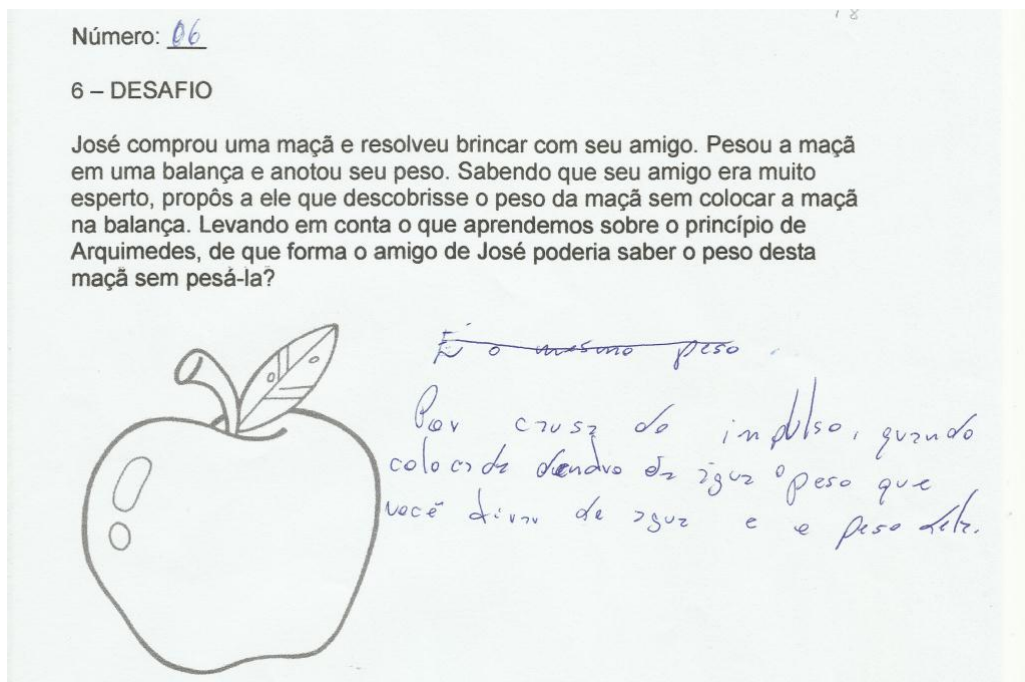 18
Número: 06
6 – DESAFIO
José comprou uma maçã e resolveu brincar com seu amigo. Pesou a maçã
em uma balança e anotou seu peso. Sabendo que seu amigo era muito
esperto, propôs a ele que descobrisse o peso da maçã sem colocar a maçã
na balança. Levando em conta o que aprendemos sobre o princípio de
Arquimedes, de que forma o amigo de José poderia saber o peso desta
maçã sem pesá-la?
É o mesmo peso.
Por causa do impulso, quando
colocada dendro da água o peso que
você de agua e e peso dela.